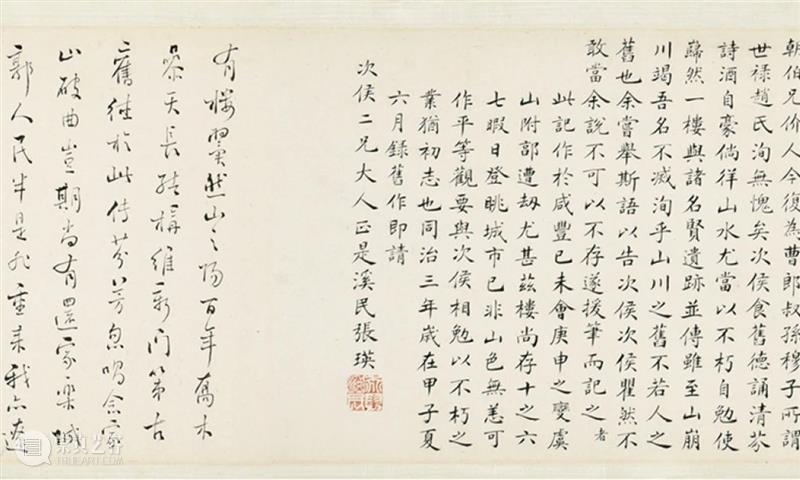 朝伯兄价人今復為曹郎叔孫穆子所謂
世祿趙氏洵無愧矣次侯食舊德誦清芬
詩酒自豪倘徉山水尤當以不朽自勉使
巋然一樓與諸名賢遺跡並傳雖至山崩
川竭吾名不滅洵乎山川之舊不若人之
舊也余嘗舉斯語以告次侯次侯瞿然不
敢當余說不可以不存遂援筆而記之
者
此記作於咸豐己未會庚申之變虞
山附郭遭劫尤甚茲樓尚存十之六
七暇日登眺城市已非山色無恙可
作平等觀要與次侯相勉以不朽之
業猶初志也同治三年歲在甲子夏
六月錄舊作即請
次侯二兄大人正是溪民張瑛
有樓翼然山之陽百年喬木
參天長結構維新門第古
舊德於此傳芬芳忽鳴金
山破曲豈期尚有還家樂城
郭人民半是非重來我亦
崇真艺客
TRUEART.COM